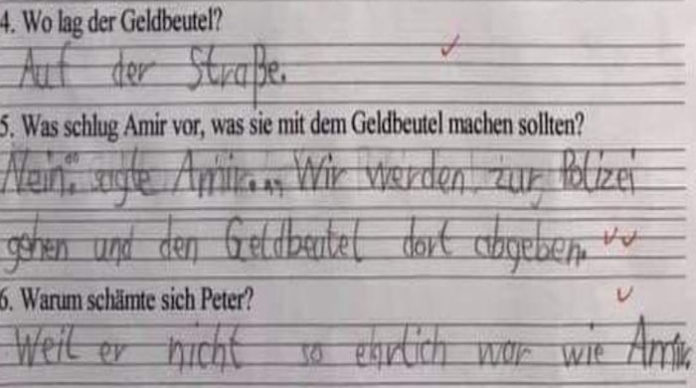 4. Wo lag der Geldbeutel?
Auf der Straße.
5. Was schlug Amir vor, was sie mit dem Geldbeutel machen sollten?
Nein." sagte Amir. „Wir werden zur Polizei
gehen und den Geldbeutel dort abgeben.
6. Warum schämte sich Peter?
Weil er nicht so ehrlich war wie Amir.